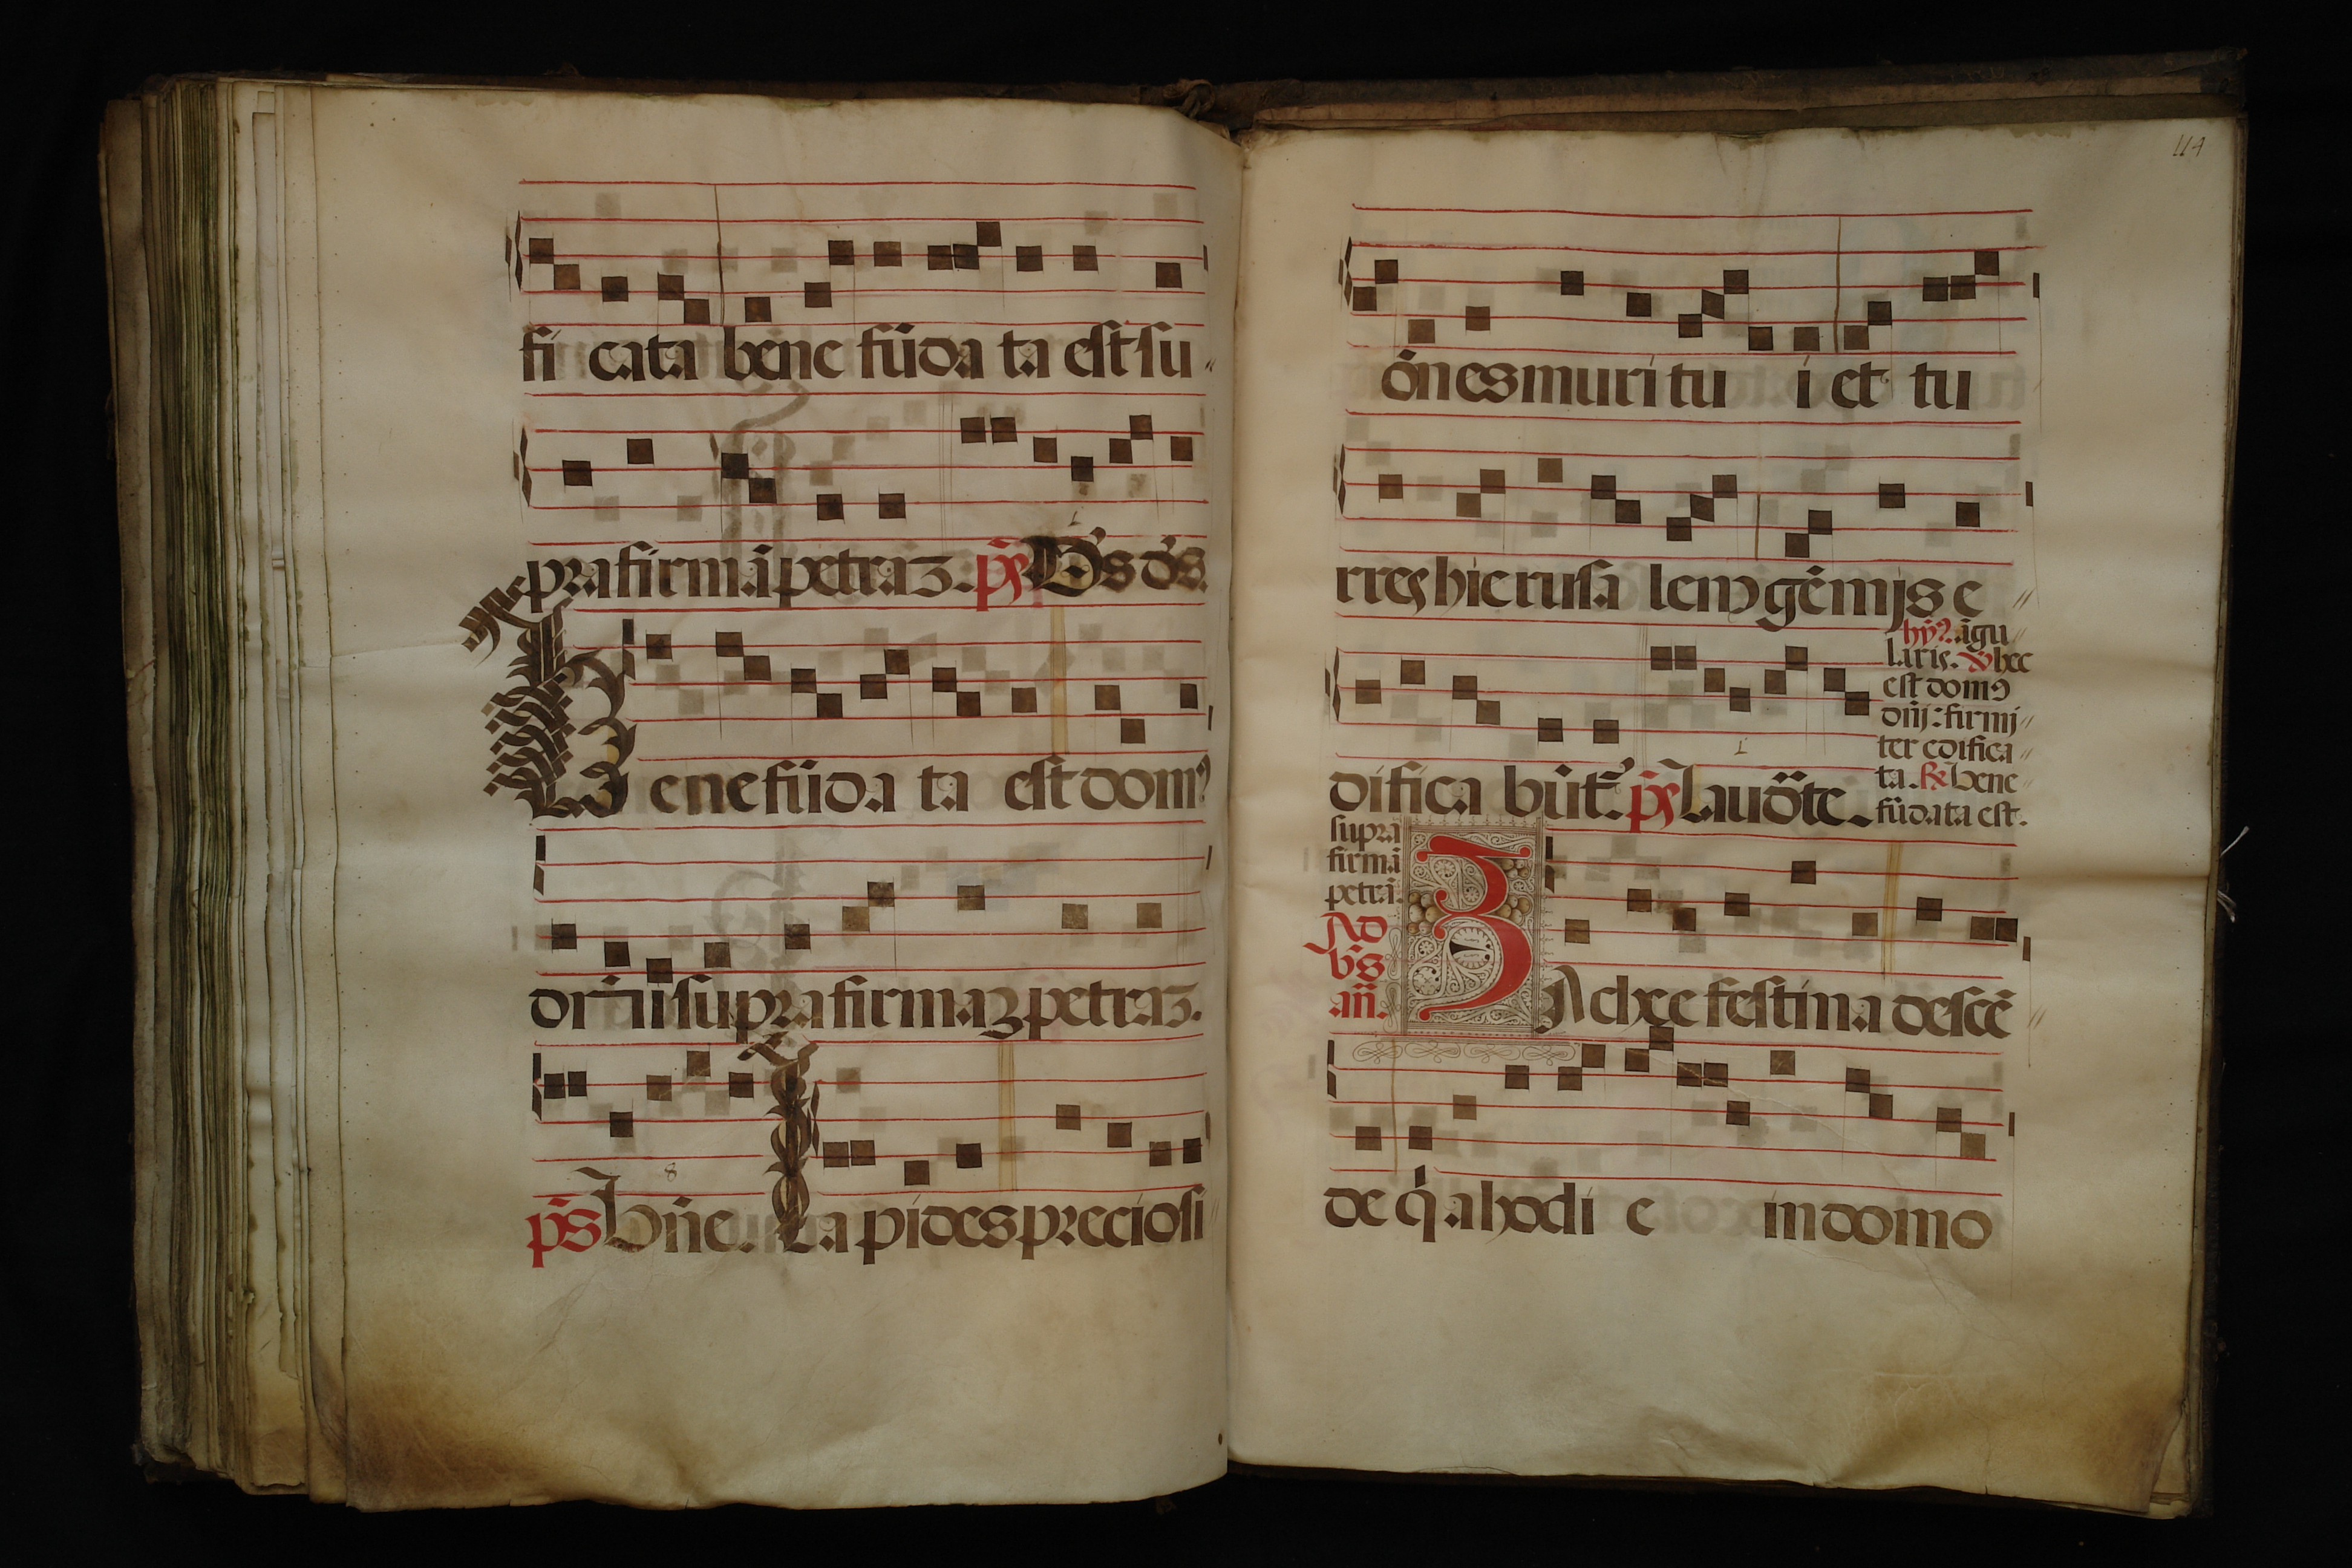 fi cata bene fūda ta est su
pra firmā petraʒ. ps̄ Ds̄ ds̄.
Bene fūda ta est domꝰ
dn̄i supra firmaʒ petraʒ.
ps̄ Bn̄e. Lapides preciosi
114
ōnes muri tu i et tu
rres hierusalem gēmis e
difica būt̄. ps̄ Laudāte.
hȳ. āgu
laris. ℣ hec
est domꝰ
dn̄i: firmi
ter edifica
ta. ℟ bene
fūdata est.
supra
firmā
petrā.
Ad
bn̄s
an̄.
Zachee festina descē
de q̇a hodi e in domo